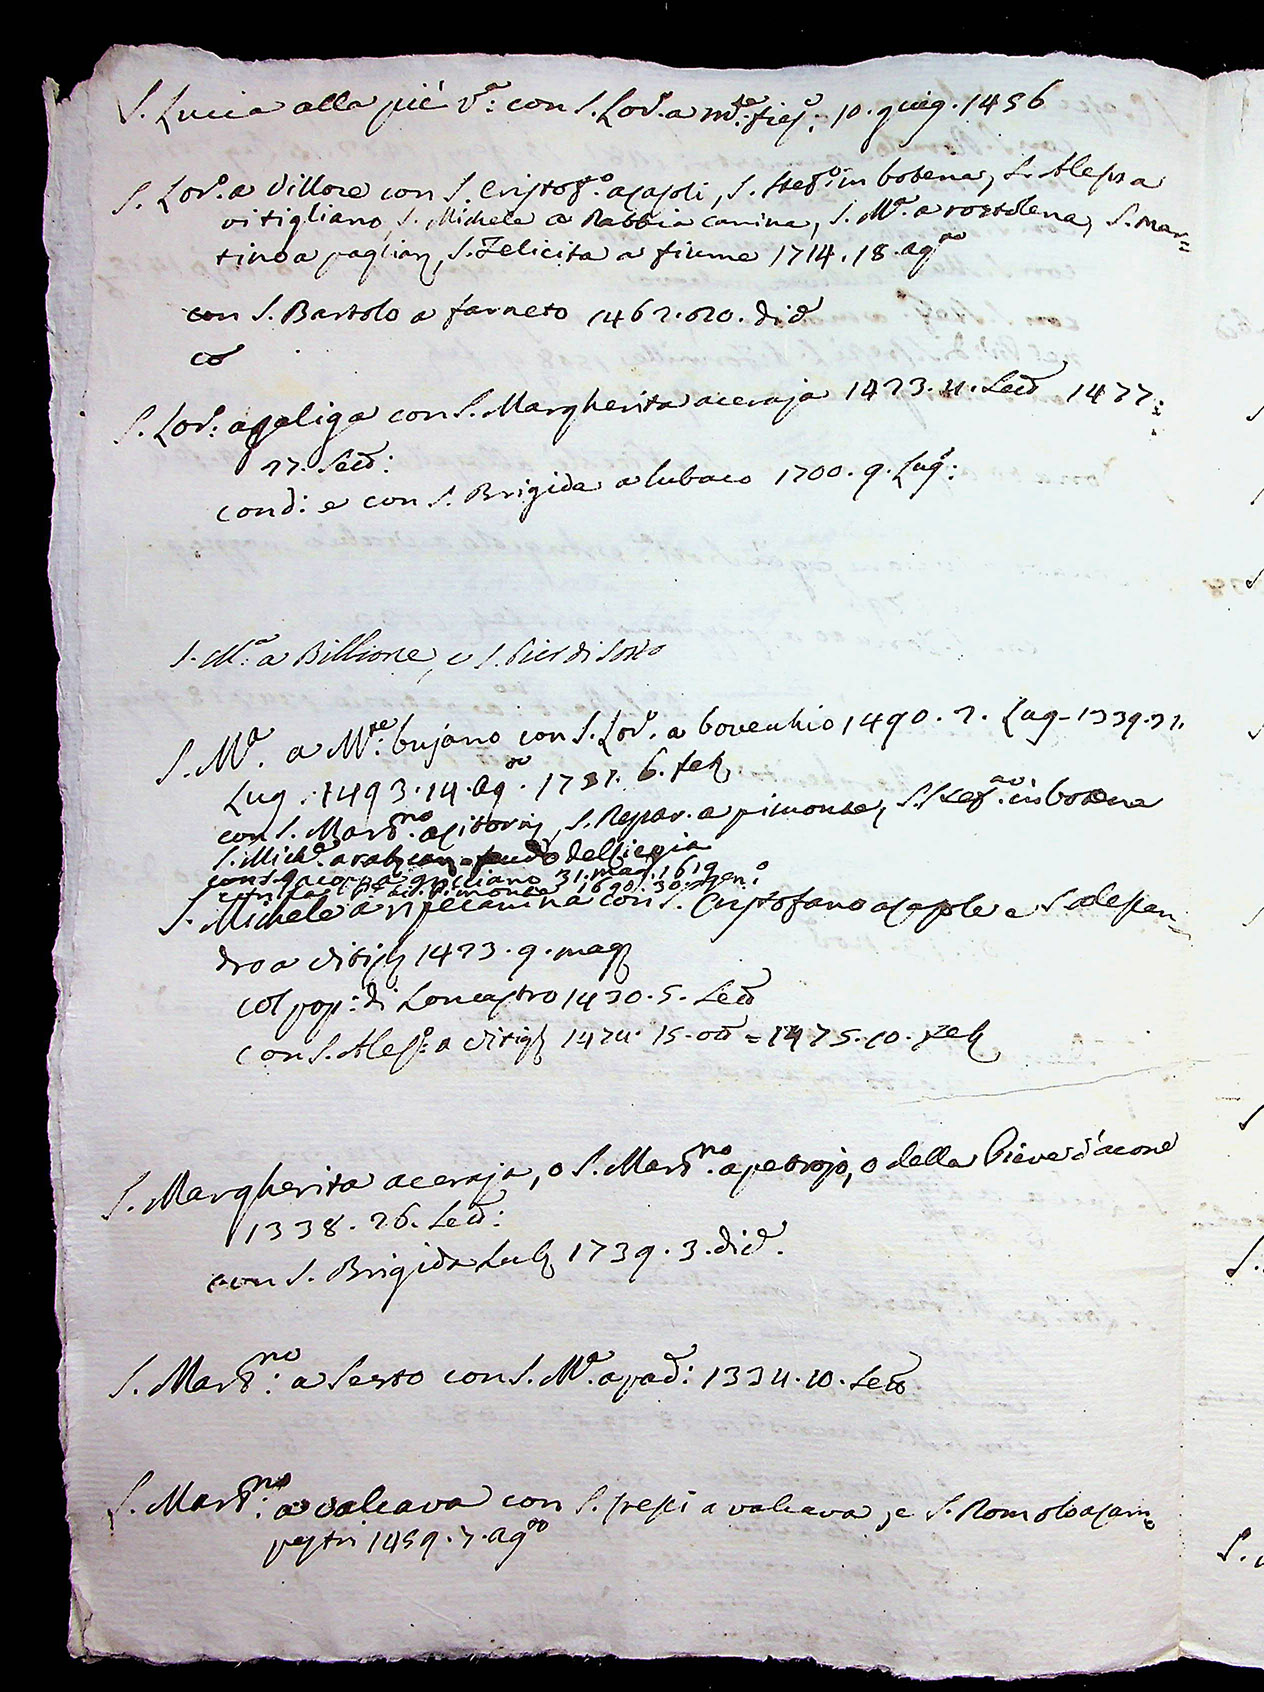 S. Lucia alla piè V.ª: con S. Lor.º a M.te fies: 10. giug. 1456
S. Lor.º a Villore con S. Cristof.º a casoli, S. Stef.º in botena, S. Aless a
vitigliano, S. Michele a Rabbia canina, S. M.ª a rostolena, S. Mar=
tino a paglia, S. Felicita a fiume 1714. 18. Ag.to
con S. Bartolo a farneto 1462. 020. dic
co
S. Lor.º: a galiga con S. Margherita aceraja 1423. 4. Sett 1477:
27. Sett:
cond: e con S. Brigida a lubaco 1700. 9. Lug:
S. M.ª: a Billione, e S. Pier di Sotto
S. M.ª. a M.te: bujano con S. Lor.º. a bovecchio 1490. 2. Lug. 1339. 31.
Lug. 1493. 14. Ag.to. 1731. 6. feb
con S. Mart.no: a, S. Repar. a pimonte, S. Stef.ano: in botena
S. Mich.e a rab. can.
31. mag. 1619
pimonte 1690. 30. gen.º
S. Michele a ripecanina con S. Cristofano a casole e S. Alessan=
dro a vitigl 1423. 9. mag
col pop: di Loncastro 1430. 5. Sett
con S. Aless: a vitigl 1474. 15. ott = 1475. 10. feb
S. Margherita aceraja, o S. Mart.no: a petrojo, o della Pieve d'acone
1338. 26. Sett:
con S. Brigida Lub 1739. 3. dic.
S. Mart.no: a Sesto con S. M.ª. a pad: 1334. 10. Sett
S. Mart.no: a valcava con S. Cresci a valcava, e S. Romolo a cam=
pestri 1459. 7. Ag.to